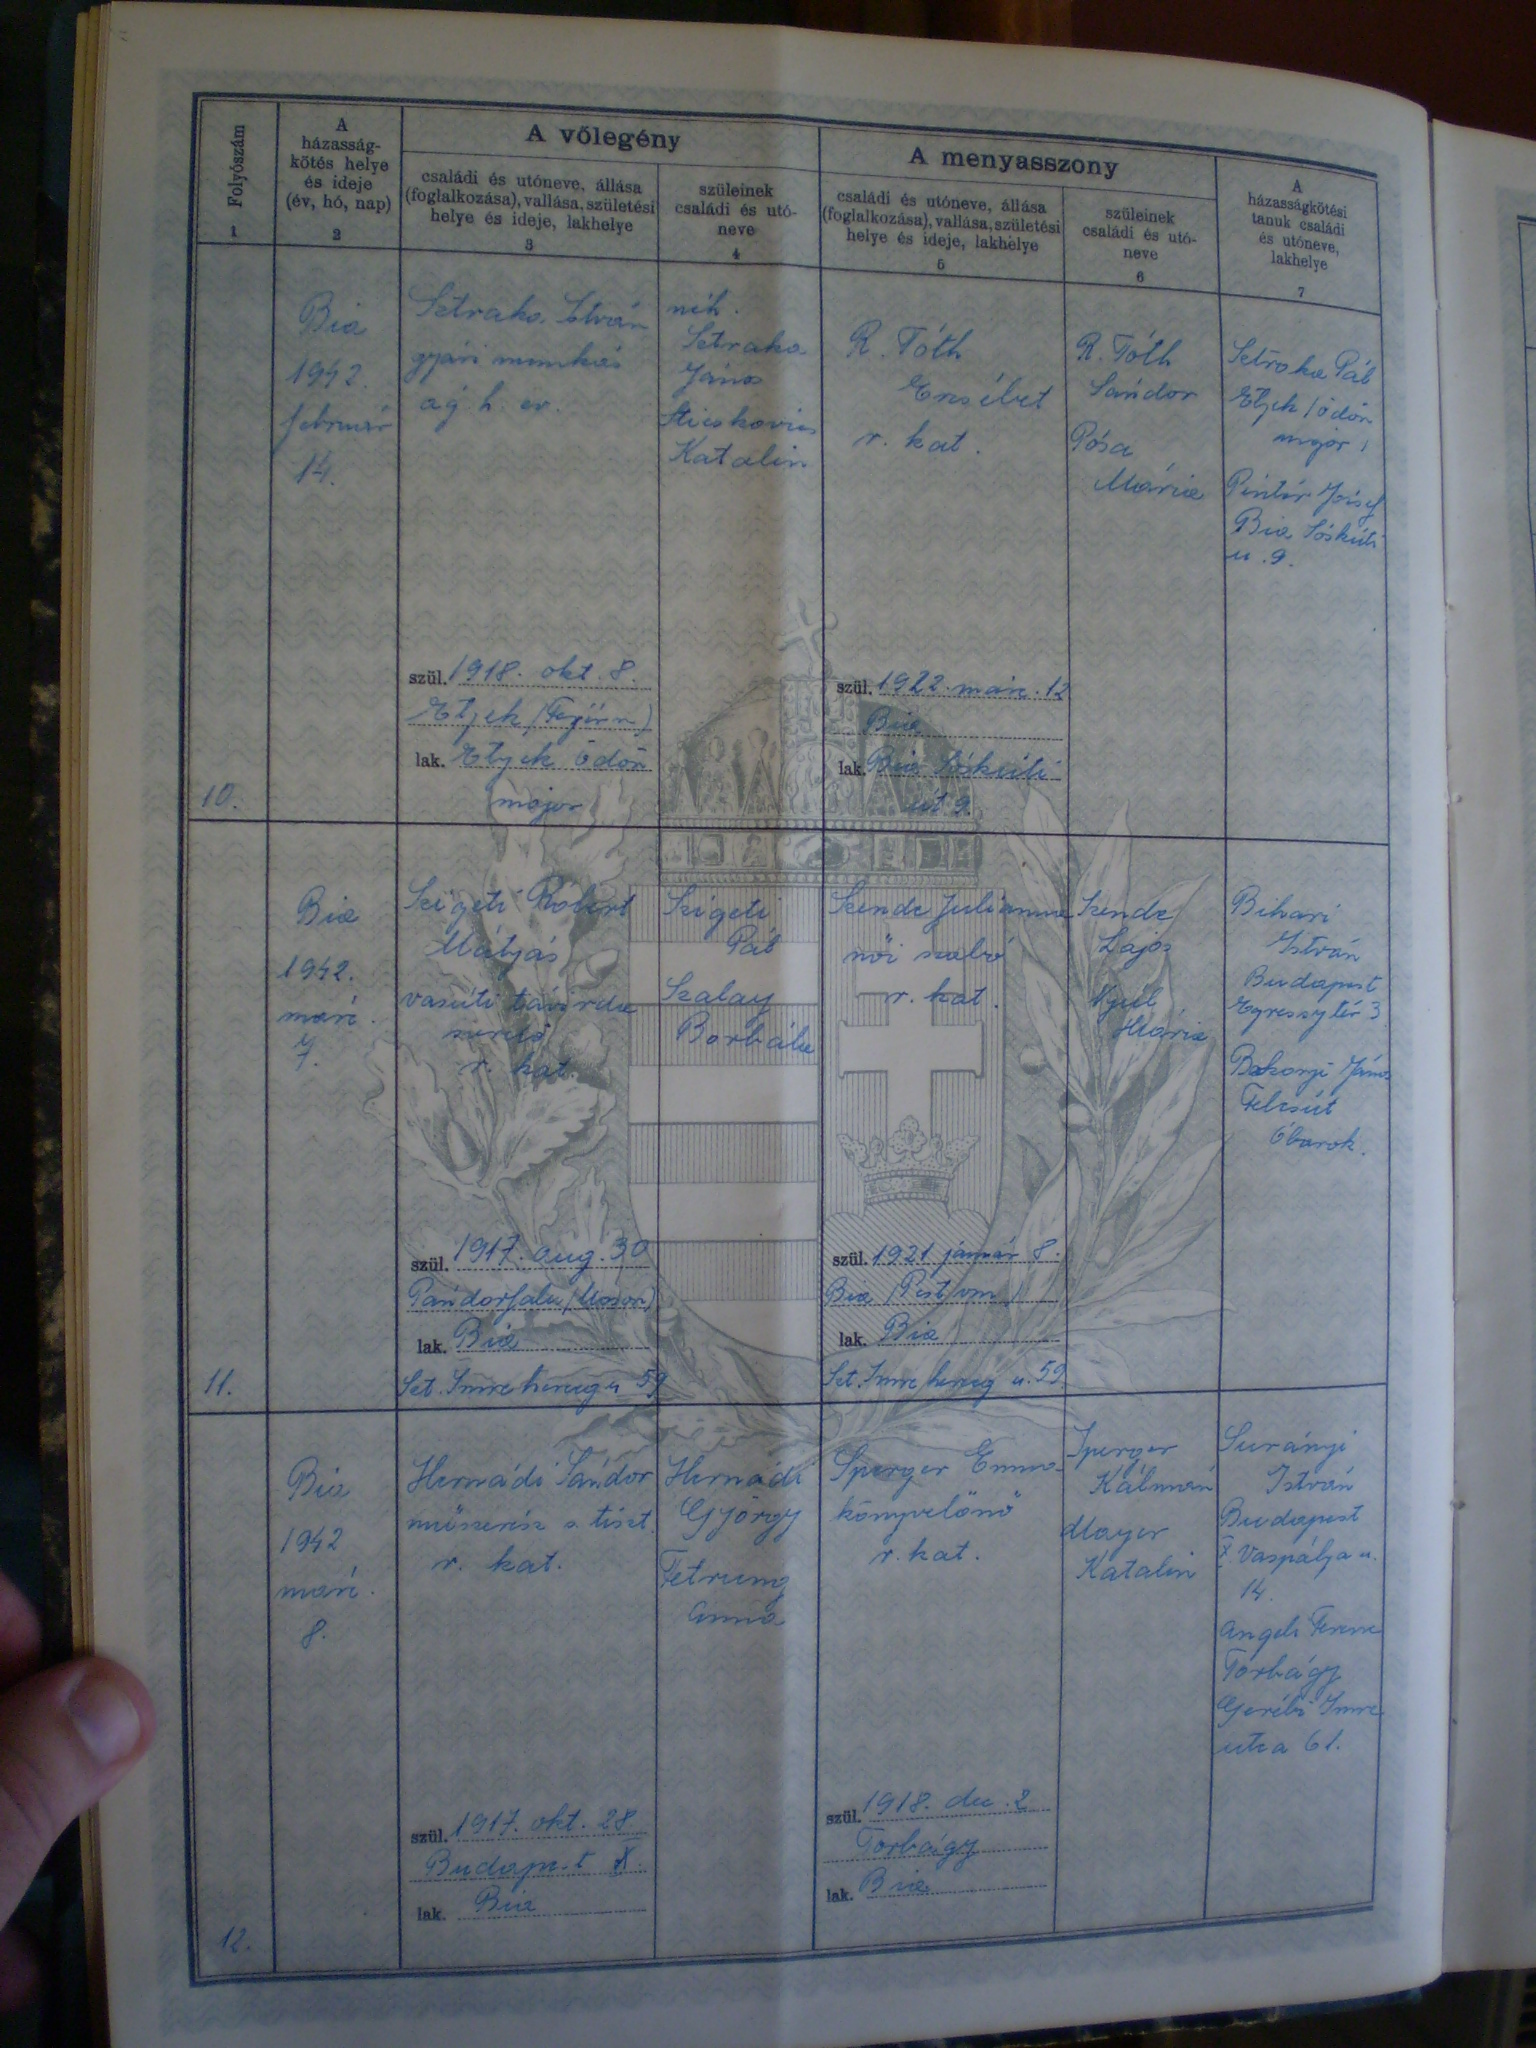 Folyószám
1
A
házasság-
kötés helye
és ideje
(év, hó, nap)
2
A vőlegény
családi és utóneve, állása
(foglalkozása), vallása, születési
helye és ideje, lakhelye
3
szüleinek
családi és utó-
neve
4
A menyasszony
családi és utóneve, állása
(foglalkozása), vallása, születési
helye és ideje, lakhelye
5
szüleinek
családi és utó-
neve
6
A
házasságkötési
tanuk családi
és utóneve,
lakhelye
7
10.
Bia
1942.
február
14.
Sztraka István
gyári munkás
ág. h. ev.
szül. 1918. okt. 8.
Etyek (Fejér m)
lak. Etyek Ödön
major
néh.
Sztraka
János
Katalin
R. Tóth
Erzsébet
r. kat.
szül. 1922. márc. 12
Bia
lak. Bia Sóskúti
út 9.
R. Tóth
Sándor
Pósa
Mária
Sztraka Pál
Etyek / Ödön
major /
Pintér József
Bia Sóskúti
u. 9.
11.
Bia
1942.
márc.
7.
Szigeti Róbert
Mátyás
vasúti távirda
r. kat.
szül. 1917. aug. 30
Pándorfalu (Moson)
lak. Bia
Szt. Imre herceg u 59
Szigeti
Pál
Szalay
Borbála
Szende Julianna
női szabó
r. kat.
szül. 1921 január 8.
Bia (Pest vm.)
lak. Bia
Szt. Imre herceg u. 59.
Szende
Lajos
Nyúl
Mária
Bihari
István
Budapest
Egressy tér 3
Bakonyi János
Felcsút
Óbarok.
12.
Bia
1942
márc.
8.
Hernádi Sándor
műszerész s. tiszt.
r. kat.
szül. 1917. okt. 28
Budapest X.
lak. Bia
Hernádi
György
Anna
Sperger Emma
könyvelőnő
r. kat.
szül. 1918. dec. 2
Torbágy
lak. Bia
Sperger
Kálmán
Mayer
Katalin
Surányi
István
Budapest
X. Vaspálya u.
14.
Angeli Ferenc
Torbágy
Imre
utca 61.